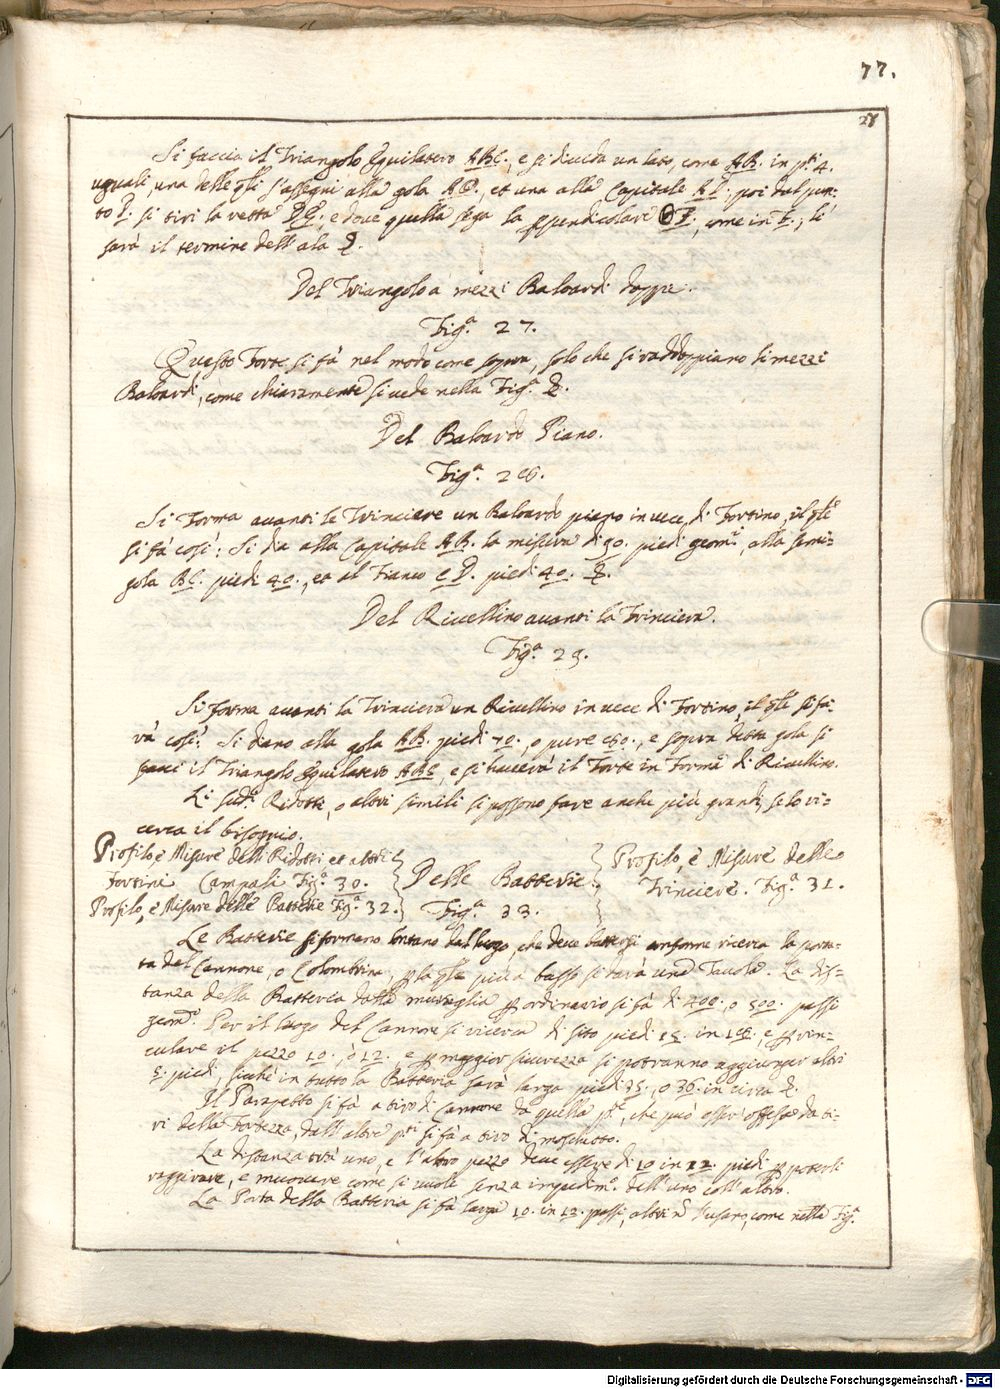 77.
28
Si faccia il Triangolo Equilatero ABC., e si divida un lato, come AB. in pti 4.
uguali, una delle qli s'assegni alla gola AD., et una alla Capitale AE., poi dal pun-
to D. si tiri la retta, e dove quella sega la ppendicolare, come in F., li
sarà il termine dell'ala
Del Triangolo a mezzi Baloardi doppi.
Figa. 27.
Questo Forte si fà nel modo come sopra, solo che si raddoppiano li mezzi
Baloardi, come chiaramente si vede nella Figa.
Del Baloardo Piano.
Figa. 28.
Si Forma avanti le Trinciere un Baloardo piano in vece di Fortino, il qle
si fà così: Si dia alla Capitale AB. la misura di 50. piedi geomi, alla semi-
gola BC. piedi 40., et al Fianco CD. piedi 40.
Del Rivellino avanti la Trinciera.
Figa. 29.
Si forma avanti la Trinciera un Rivellino in vece di Fortino, il qle si fa-
rà così: Si diano alla gola AB. piedi 70. o pure 80., e sopra detta gola si
facci il Triangolo Equilatero ABC, e si haverà il Forte in Forma di Rivellino.
Li sudi Ridotti, o altri simili si possono fare anche più grandi, se lo ri-
cerca il bisogno.
Profilo, è Misure delli Ridotti et altri
Fortini Campali Figa. 30.
Profilo, è Misure delle Batterie Figa. 32.
Delle Batterie.
Figa. 33.
Profilo, è Misure delle
Trinciere. Figa. 31.
Le Batterie si formano lontano dal luogo, che deve battersi conforme ricerca la porta-
ta del Cannone, o Colombrina, p la qle più a basso si darà una Tavola. La dis-
tanza della Batteria dalla muraglia p ordinario si fà di 400. o 500. passi
geomi. Per il luogo del Cannone si ricerca di sito piedi 15. in 18., e p rin-
culare il pezzo 10. ò 12., e p maggior sicurezza si potranno aggiunger altri
5. piedi, sicchè in tutto la Batteria sarà larga piedi 35. o 36. in circa
Il Parapetto si fà a tiro di Cannone da quella pte, che può esser offesa da ti-
ri della Fortezza, dall'altre pti si fà a tiro di moschetto.
La distanza trà uno, e l'altro pezzo deve essere di 10 in 12 piedi p poterli
raggirare, e muovere come si vuole senza impedimo dell'uno coll'altro.
La Porta della Batteria si fà larga 10. in 12. passi, altri usano, come nella Figa.
Digitalisierung gefördert durch die Deutsche Forschungsgemeinschaft - DFG